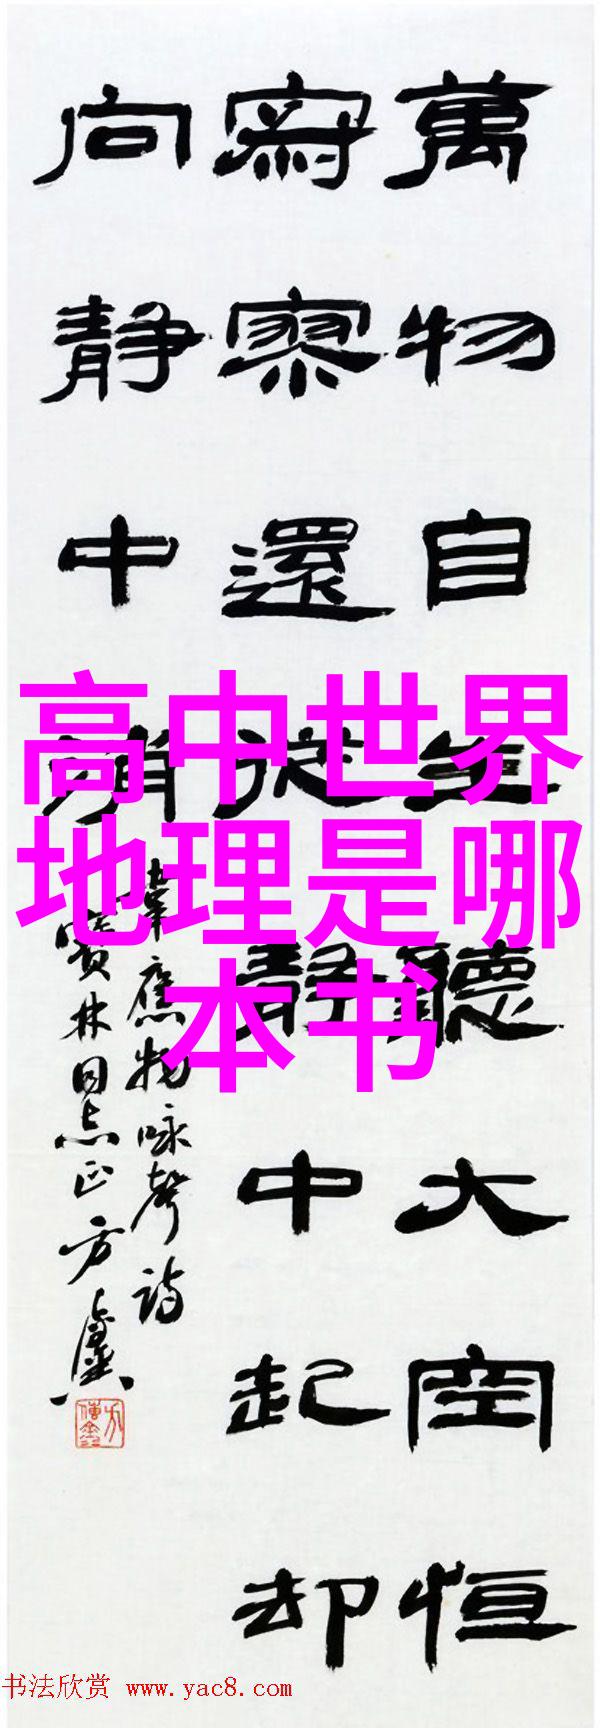 萬物自生聽大空恒
寂寥還從静中起却
向静中消
韋應物咏聲詩
寶林同志正方
高中世界
地理是哪
本书
书法欣赏 www.yac8.com